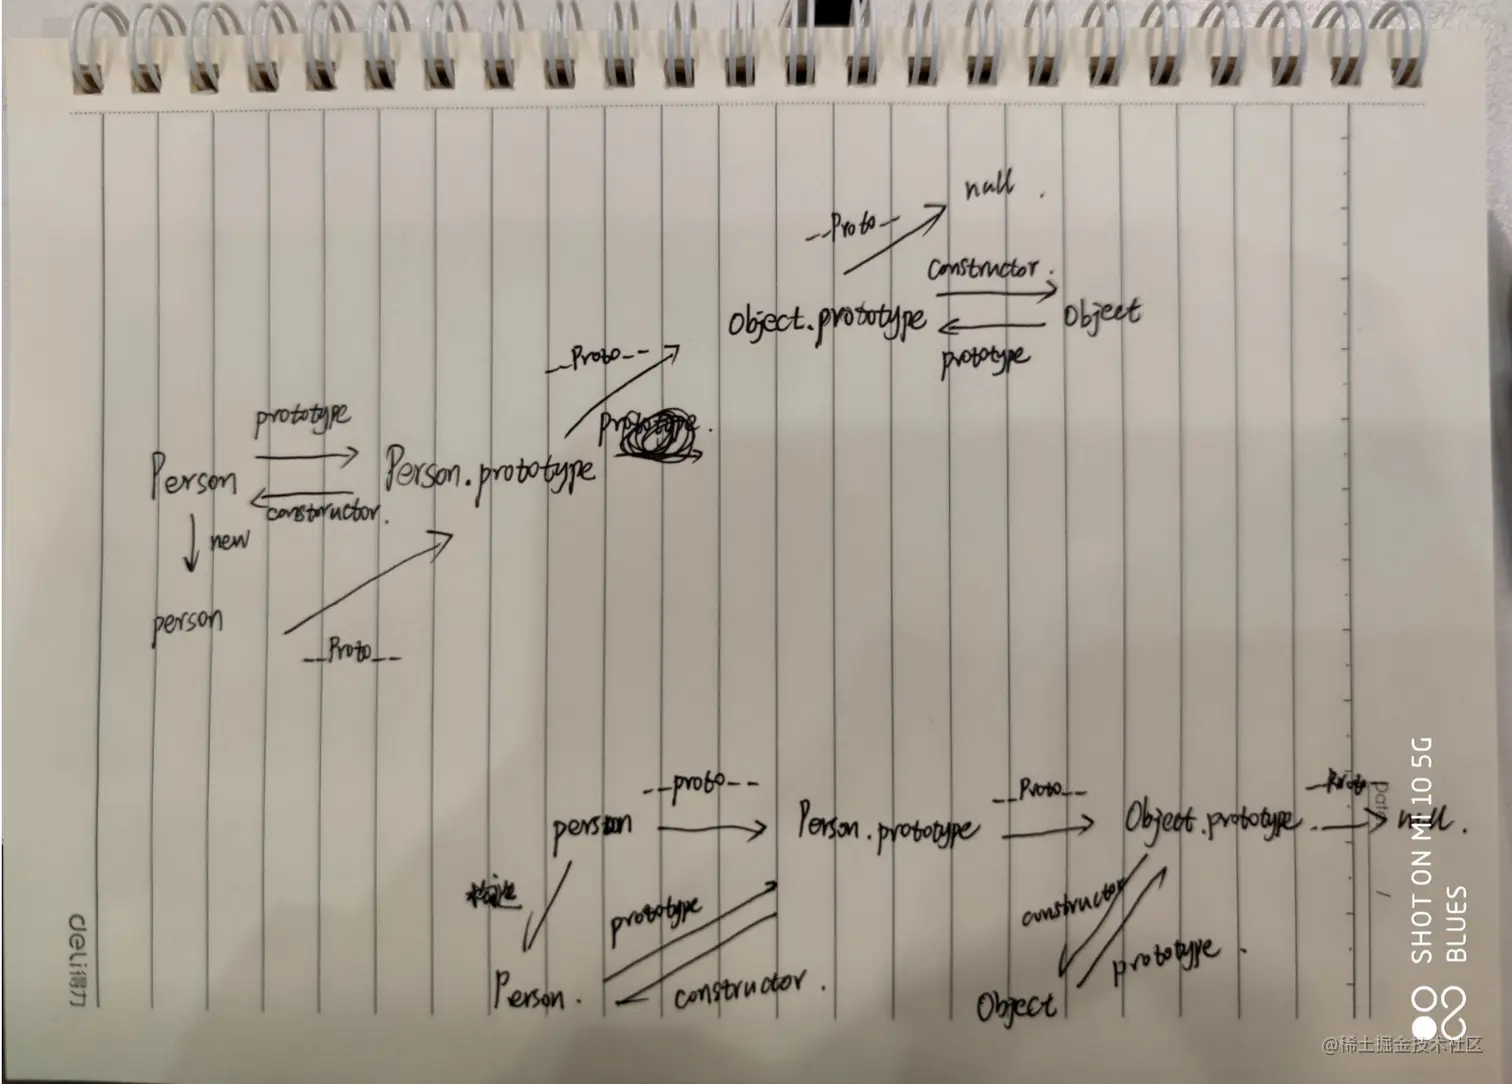 null .
__Proto__
constructor.
Object.prototype
Object
prototype
__Proto__
prototype
Person
Person.prototype
constructor.
new
person
__Proto__
__proto__
__Proto__
__Proto__
person
Person.prototype
Object.prototype
null .
构造
prototype
constructor
prototype .
Person .
constructor .
Object
deli得力
Date
SHOT ON MI 10 5G
BLUES
@稀土掘金技术社区